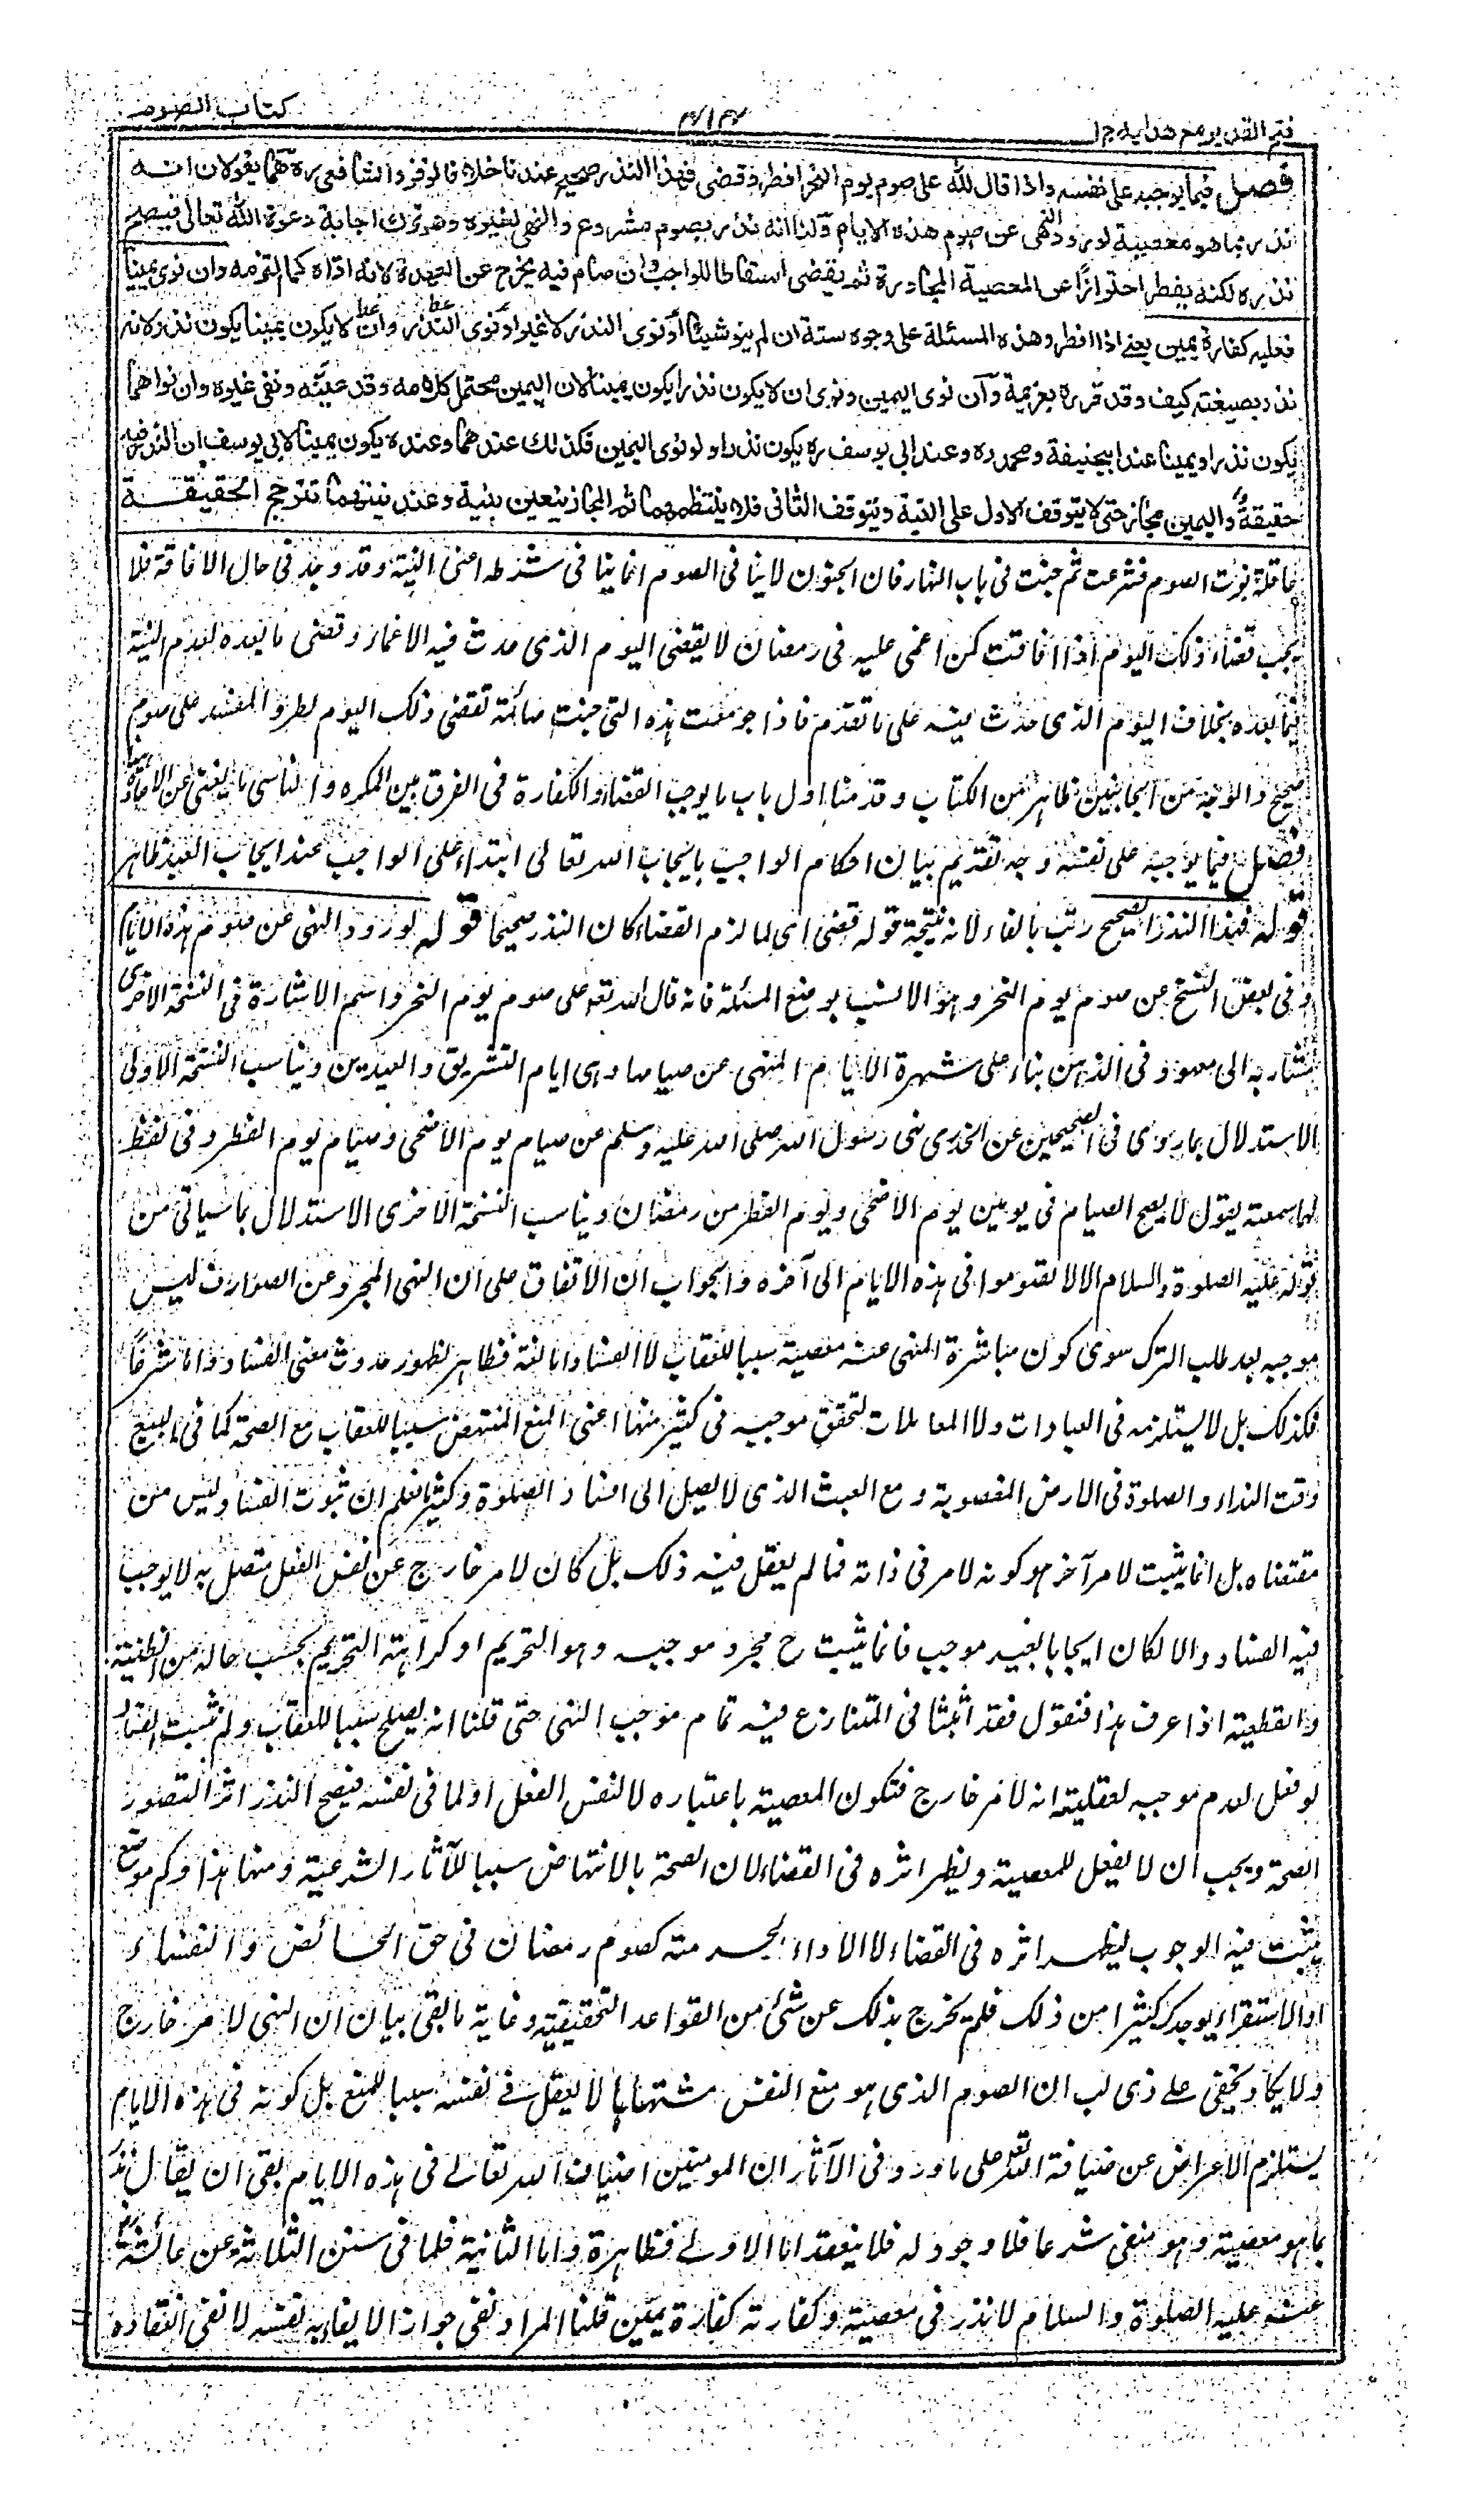 فتح القدير مع هدايه ج ا
۴۱۴
كتاب الصوم
فصل فيما يوجبه على نفسه واذا قال لله على صوم يوم النحر افطر وقضى فهذا النذر صحيح عندنا خلافا لزفر والشافعي ره هما يقولان انه
نذر بما هو معصية لورود النهى عن صوم هذه الايام ولنا انه نذر بصوم مشروع والنهى لغيره وهو ترك اجابة دعوة الله تعالى فيصح
نذره لكنه يفطر احترازا عن المعصية المجاورة ثم يقضى اسقاطا للواجب وان صام فيه يخرج عن العهدة لانه اداه كما التزمه وان نوى يمينا
فعليه كفارة يمين يعنى اذا افطر وهذه المسئلة على وجوه ستة ان لم ينو شيئا او نوى النذر لا غير او نوى النذر وان لا يكون يمينا يكون نذرا لانه
نذر بصيغته كيف وقد قرره بعزيمة وان نوى اليمين ونوى ان لا يكون نذرا يكون يمينا لان اليمين محتمل كلامه وقد عينه ونفى غيره وان نواهما
يكون نذرا ويمينا عند ابيحنيفة ومحمد ره وعند ابى يوسف ره يكون نذرا ولو نوى اليمين فكذلك عندهما وعنده يكون يمينا لابى يوسف ان النذر فيه
حقيقة واليمين مجاز حتى لا يتوقف الاول على النية ويتوقف الثانى فلا ينتظمهما ثم المجاز يتعين بنية وعند نيتهما تترجح الحقيقة
عاقلة نوت الصوم فشرعت ثم جنت فى باب النهار فان الجنون لا ينافى الصوم انما ينافى شرطه اعنى النية وقد وجد فى حال الافاقة فلا
يجب قضاء ذلك اليوم اذا افاقت كمن اغمى عليه فى رمضان لا يقضى اليوم الذى حدث فيه الاغماء وقضى ما بعده لعدم النية
فيما بعده بخلاف اليوم الذى حدث فيه على ما تقدم فاذا جومعت هذه التى جنت صائمة تقضى ذلك اليوم لطرو المفسد على صوم
صحيح والوجه من الجانبين ظاهر من الكتاب وقدمنا اول باب ما يوجب القضاء والكفارة فى الفرق بين المكره والناسى ما يغنى عن الاعادة
فصل فيما يوجبه على نفسه وجه تقديم بيان احكام الواجب بايجاب الله تعالى ابتداء على الواجب عند ايجاب العبد ظاهر
قوله فهذا النذر صحيح رتب بالفاء لانه نتيجة قوله قضى اى لما لزم القضاء كان النذر صحيحا قوله لورود النهى عن صوم هذه الايام
وفى بعض النسخ عن صوم يوم النحر وهو الانسب بوضع المسئلة فانه قال لله تعه على صوم يوم النحر واسم الاشارة فى النسخة الاخرى
مشار به الى معهود فى الذهن بناء على شهرة الايام المنهى عن صيامها وهى ايام التشريق والعيدين ويناسب النسخة الاولى
الاستدلال بما روى فى الصحيحين عن الخدرى نهى رسول الله صلى الله عليه وسلم عن صيام يوم الاضحى وصيام يوم الفطر وفى لفظ
لهما سمعته يقول لا يصح الصيام فى يومين يوم الاضحى ويوم الفطر من رمضان ويناسب النسخة الاخرى الاستدلال بما سياتى من
قوله عليه الصلوة والسلام الا لا تصوموا فى هذه الايام الى آخره والجواب ان الاتفاق على ان النهى المجرد عن الصوارف ليس
موجبه بعد طلب الترك سوى كون مباشرة المنهى عنه معصية سببا للعقاب لا الفساد اما لغة فظاهر لظهور حدوث معنى الفساد واما شرعا
فكذلك بل لا يستلزمه فى العبادات ولا المعاملات لتحقق موجبه فى كثير منها اعنى المنع المنتهض سببا للعقاب مع الصحة كما فى البيع
وقت النداء والصلوة فى الارض المغصوبة ومع العبث الذى لا يصل الى افساد الصلوة وكثير فعلم ان ثبوت الفساد ليس من
مقتضاه بل انما يثبت لامر آخر هو كونه لامر فى ذاته فما لم يعقل فيه ذلك بل كان لامر خارج عن نفس الفعل متصل به لا يوجب
فيه الفساد والا لكان ايجابا بغير موجب فانما يثبت ح مجرد موجبه وهو التحريم او كراهة التحريم بحسب حاله من الظنية
والقطعية اذا عرف هذا فنقول فقد اثبتنا فى المتنازع فيه تمام موجب النهى حتى قلنا انه يصلح سببا للعقاب ولم يثبت الفساد
لو فعل لعدم موجبه لعقلية انه لامر خارج فتكون المعصية باعتباره لا لنفس الفعل او لما فى نفسه فيصح النذر اثر التصور
الصحة ويجب ان لا يفعل للمعصية ويظهر اثره فى القضاء لان الصحة بالانتهاض سببا للآثار الشرعية ومنها هذا وكم موضع
يثبت فيه الوجوب ليظهر اثره فى القضاء لا الاداء لحرمته كصوم رمضان فى حق الحائض والنفساء
والاستقراء يوجدك كثيرا من ذلك فلم يخرج بذلك عن شئ من القواعد التحقيقية وغاية ما بقى بيان ان النهى لامر خارج
ولا يكاد يخفى على ذى لب ان الصوم الذى هو منع النفس مشتهاها لا يعقل فى نفسه سببا للمنع بل كونه فى هذه الايام
يستلزم الاعراض عن ضيافة الله على ما ورد فى الآثار ان المومنين اضياف الله تعالى فى هذه الايام بقى ان يقال نذر
بما هو معصية وهو منفى شرعا فلا وجود له فلا ينعقد اما الاولى فظاهرة واما الثانية فلما فى سنن الثلاثة عن عائشة رض
عنه عليه الصلوة والسلام لا نذر فى معصية وكفارته كفارة يمين قلنا المراد نفى جواز الايفاء به نفسه لا نفى انعقاده